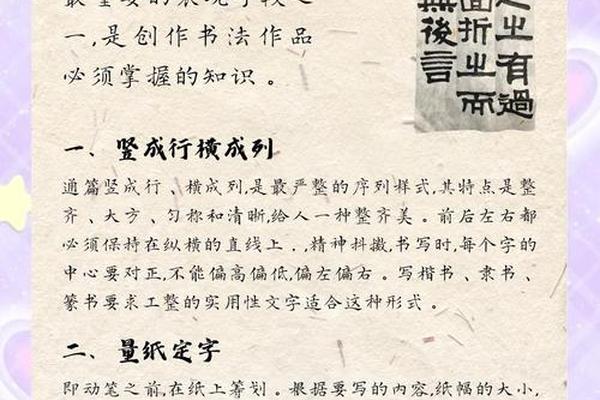 最重要的表现手段之
一,是创作书法作品
必须掌握的知识。
之士有過
面折之而
無後言
一、竖成行横成列
通篇竖成行、横成列,是最严整的序列样式,其特点是整
齐、大方、匀称和清晰,给人一种整齐美。前后左右都
必须保持在纵横的直线上.,精神抖擞,书写时,每个字的
中心要对正,不能偏高偏低,偏左偏右。写楷书、隶书、
篆书要求工整的实用性文字适合这种形式。
二、量纸定字
即动笔之前,在纸上筹划。根据要写的内容,纸幅的大小,